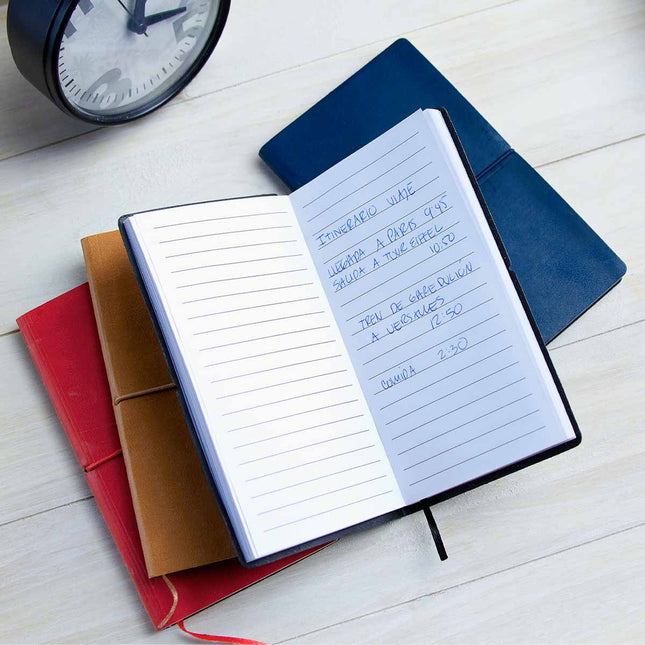 ITINERARIO VIAJE
LLEGADA A PARIS 9:45
SALIDA A TOUR EIFFEL
10:50
TREN DE GARE
A VERSALLES
12:50
COMIDA 2:30